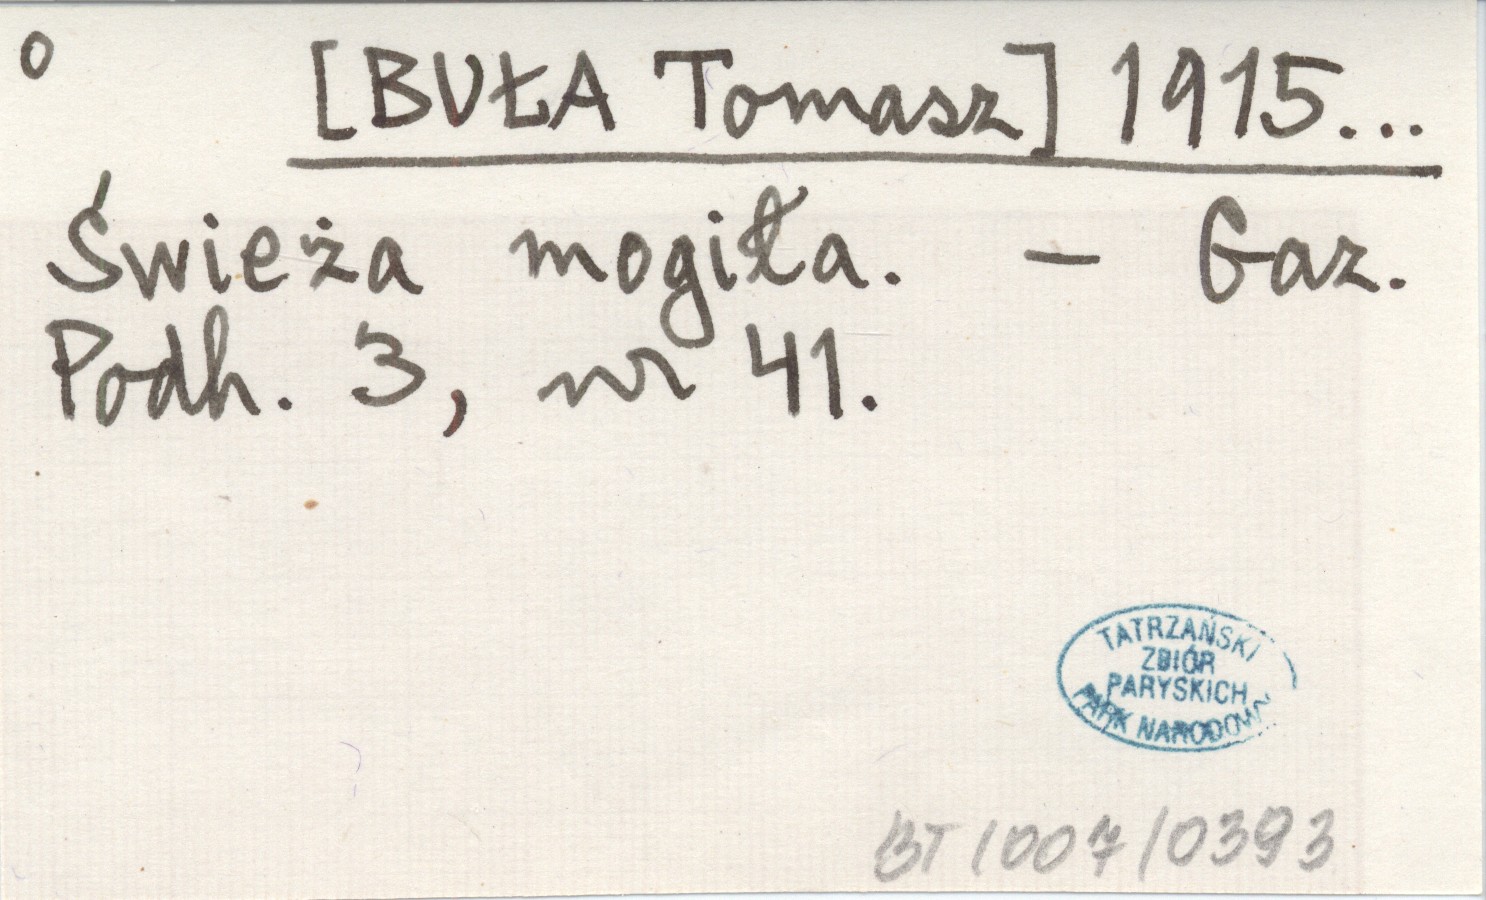 o
[BUŁA Tomasz] 1915...
Świeża mogiła. - Gaz.
Podh. 3, nr 41.
TATRZAŃSKI
ZBIÓR
PARYSKICH
PARK NARODOWY
BT/007/0393